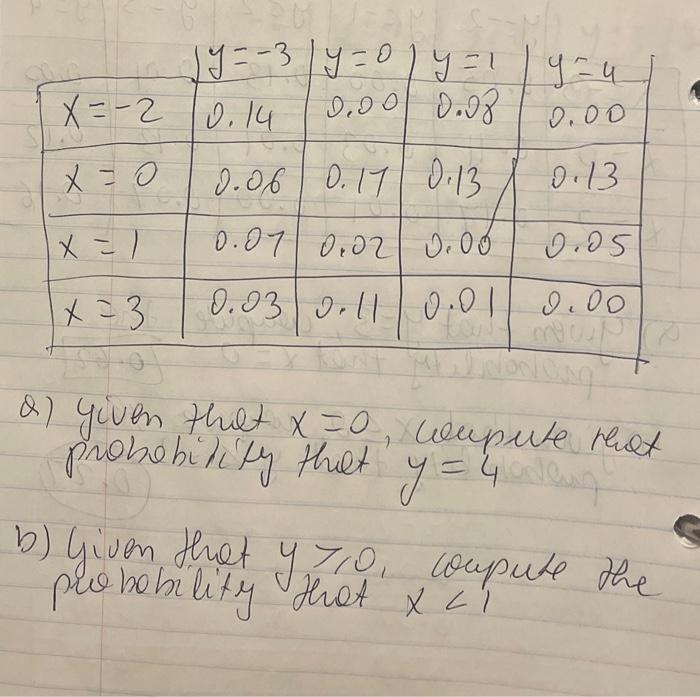 y=-3 y=0 y=1 y=4
x=-2 0.14 0.00 0.08 0.00
x=0 0.06 0.17 0.13 0.13
x=1 0.07 0.02 0.00 0.05
x=3 0.03 0.11 0.01 0.00
a) given that x=0, compute that
probability that y=4
b) Given that y≥0, compute the
probability that x<1